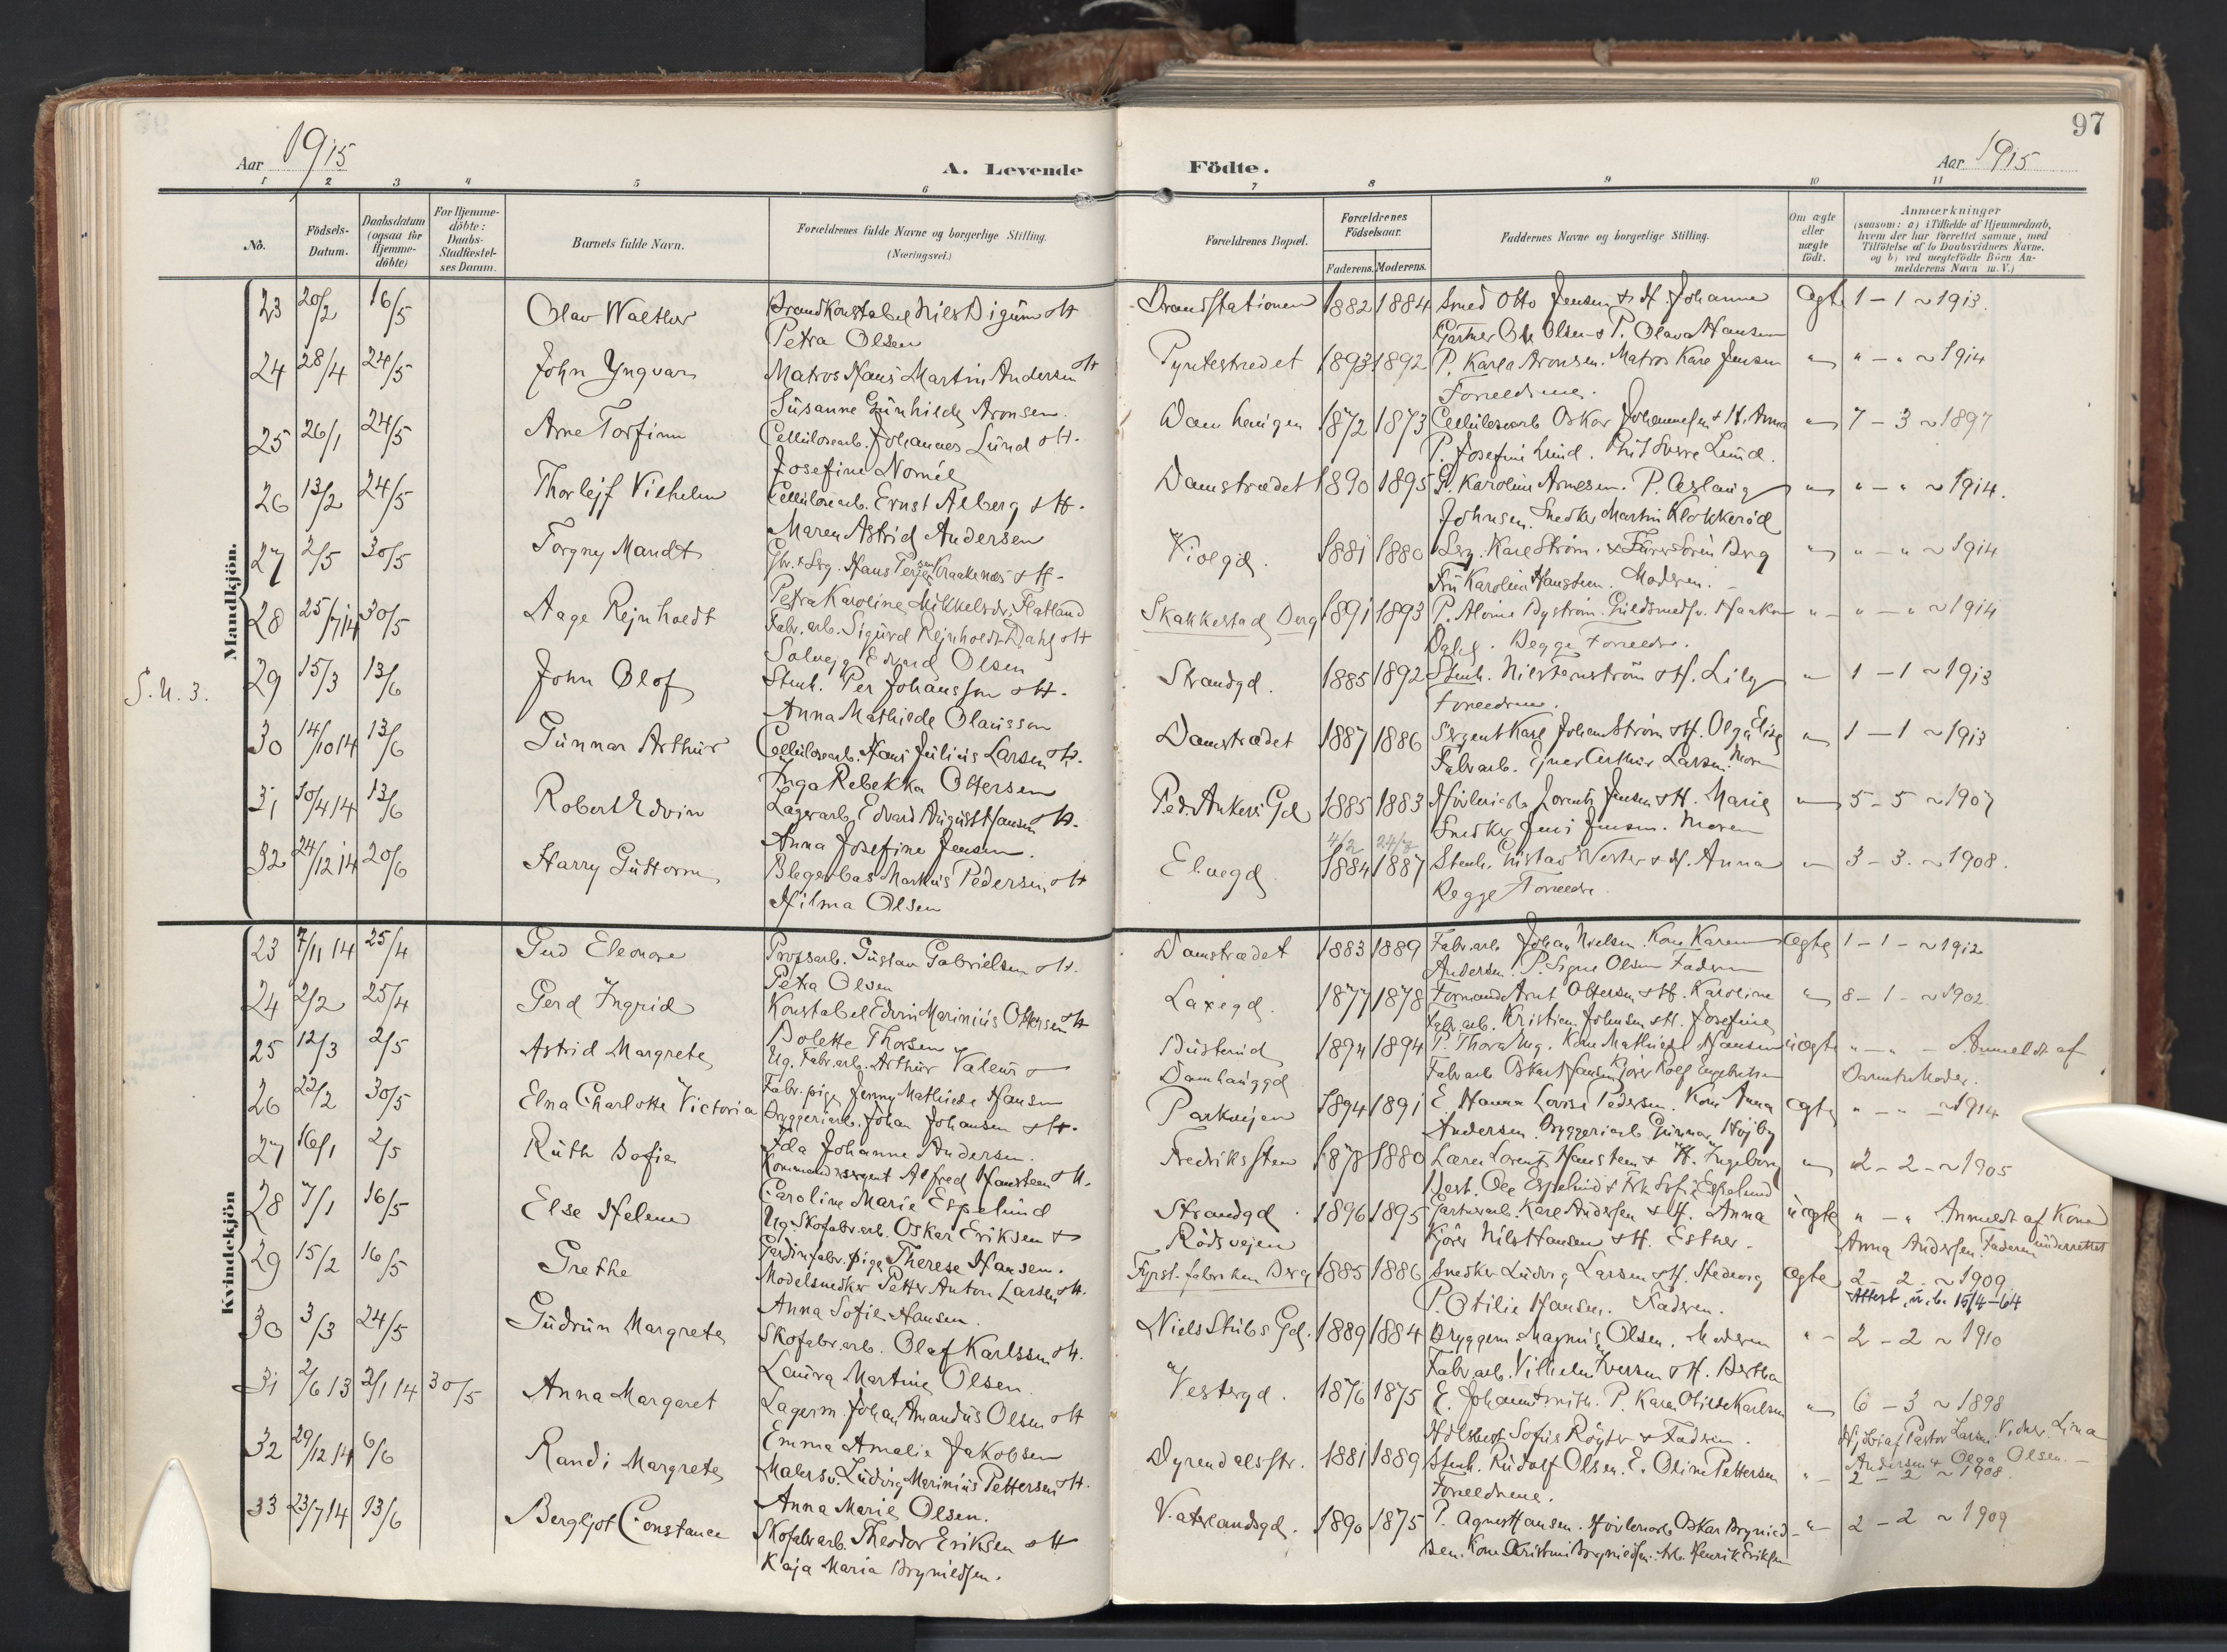 97
Aar 1915
A. Levende
Födte.
Aar 1915
1 2 3 4 5 6 7 8 9 10 11
No.
Födsels-Datum.
Daabsdatum (ogsaa for Hjemme-döbte)
For Hjemme-döbte: Daabs-Stadfæstel-ses Datum.
Barnets fulde Navn.
Forældrenes fulde Navne og borgerlige Stilling. (Næringsvei.)
Forældrenes Bopæl.
Forældrenes Födselsaar.
Faderens. Moderens.
Faddernes Navne og borgerlige Stilling.
Om ægte eller uægte födt.
Anmærkninger
(saasom: a) i Tilfælde af Hjemmedaab, hvem der har forrettet samme, med Tilföielse af to Daabsvidners Navne. og b) ved uægtefödte Börn An-melderens Navn m. V.)
Mandkjön.
23 20/2 16/5 Olav Walther Brandkonstabel Nils Digum o H Brandstationen 1882 1884 Smed Otto Jensen & H. Johanne Ægte 1 - 1 ~ 1913.
Petra Olsen Gartner Ole Olsen & P. Olava Hansen
24 28/4 24/5 John Yngvar Matros Hans Martin Andersen o H Pyntestrædet 1893 1892 P. Karla Aronsen. Matros Kare Jensen " " - " ~ 1914
Susanne Gunhilde Aronsen. Forældrene.
25 26/1 24/5 Arne Torfinn Cellulosearb. Johannes Lund o H. Damhaugen 1872 1873 Cellulosearb Oskar Johannesen & H. Anna " 7 - 3 ~ 1897
Josefine P. Josefine Lund. Sverre Lund.
26 13/2 24/5 Thorleif Vilhelm Cellulosearb. Ernst Alberg o H. Damstrædet 1890 1895 Karoline Arnesen. P. Aslaug " " - " ~ 1914.
Maren Astrid Andersen Johnsen. Snedker Martin Klokkerød
27 2/5 30/5 Torgny Mandt Hans Kraakenes o H. Violgd. 1881 1880 Serg. Karl Strøm. & Sorin Berg " " - " ~ 1914
Petra Karoline Mikkelsdr. Flatland Fru Karoline Hausteen. Moderen.
28 25/7 14 30/5 Aage Rejnholdt Fabr. arb. Sigurd Rejnholdt Dahl o H Skakkestad Berg 1891 1893 P. Nyström. Guldsmedsv. Haakon " " - " ~ 1914
Solveig Edvard Olsen Dahl. Begge Forældre.
S. U. 3. 29 15/3 13/6 John Olof Stenh. Per Johansson o H. Strandgd. 1885 1892 Stenh. Nils Ternström o H. Lily " 1 - 1 ~ 1913
Anna Mathilde Olausson Forældrene.
30 14/10 14 13/6 Gunnar Arthur Cellulosearb. Hans Julius Larsen o H. Damstrædet 1887 1886 Sergent Karl Johan Strøm o H. Olga Elise " 1 - 1 ~ 1913
Inga Rebekka Ottersen Fabr arb. Ejner Arthur Larsen. Mor
31 10/4 14 13/6 Robert Edvin Lagerarb. Edvard August Hansen o H. Ped. Ankers Gd 1885 1883 Høvleriarb Lorentz Jensen o H. Marie " 5 - 5 ~ 1907
Anna Josefine Jensen. Snedker Jens Jensen. Moren
4/2 24/8
32 24/12 14 20/6 Harry Guttorm Markus Pedersen o H Elvegd 1884 1887 Stenh. Gustav Wester & H. Anna " 3 - 3. ~ 1908.
Hilma Olsen Begge Forældre.
Kvindekjön
23 7/11 14 25/4 Gud Eleonore Gustav Gabrielsen o H. Damstrædet 1883 1889 Fabr. arb Johan Nielsen. Kone Karen Ægte 1 - 1 - ~ 1912
Petra Olsen Andersen. P. Signe Olsen Faderen
24 2/2 25/4 Gerd Ingrid Konstabel Edvin Marinius Ottersen o H Laxegd. 1877 1878 Formand Arnt Ottersen o H. Karoline " 8 - 1 - ~ 1902.
Bolette Thorsen Fabr. arb. Kristian Johnsen o H. Josefine
25 12/3 2/5 Astrid Margrete Ug. Fabr. arb. Arthur Valeur o Busterud 1894 1894 P. Thora Aug. Kone Mathilde Hansen uægte " - " - Anmeldt af
Fabr. pige Jenny Mathilde Hansen Damhauggd Fabr arb. Oskar Hansen Kjører Rolf Engebretsen Barnets Moder.
26 22/2 30/5 Elna Charlotte Victoria Bryggeriarb. Johan Johansen o H. Parkvejen 1894 1891 E. Hanna Lovise Pedersen. Kone Anna Ægte " - " ~ 1914
Ida Johanne Andersen. Andersen. Bryggeriarb Gunnar Højby
27 16/1 2/5 Ruth Sofie Kommandersergent Alfred Hausteen o H. Fredriksten 1878 1880 Lærer Lorentz Hausteen & H. Ingeborg " 2 - 2 - ~ 1905
Caroline Marie Espelund Best. Ole Espelund & Frk Sofie Espelund
28 7/1 16/5 Else Helene Ug. Skofabr. arb. Oskar Eriksen & Strandgd. 1896 1895 Gartnerarb. Karl Andersen & H. Anna uægte " - " Anmeldt af Kone
Gardinfabr. pige Therese Hansen. Rødsvejen Kjører Nils Hansen & H. Esther. Anna Andersen. Faderen underrettet
29 15/2 16/5 Grethe Modelsnedker Petter Anton Larsen o H. Fyrst. fabriken Berg 1885 1886 Snedker Ludvig Larsen o H. Hedevig Ægte 2 - 2 - ~ 1909
Anna Sofie Hansen. P. Otilie Hansen. Faderen. Attest. u. b. 15/4-64
30 3/3 24/5 Gudrun Margrete Skofabr. arb. Olaf Karlssen o H. Niels Stubs Gd. 1889 1884 Bryggem. Magnus Olsen. Moderen " 2 - 2 ~ 1910
Laura Martine Olsen. Fabr. arb. Vilhelm Iversen o H. Bertha
31 2/6 13 2/1 14 30/5 Anna Margaret Lagerm. Johan Amandus Olsen o H Vestergd. 1876 1875 E. Johanne Smith. P. Karen Otilie Karlsen " 6 - 3 ~ 1898
Emma Amalie Jakobsen Sofus Röyter & Faderen. Hjdøbt af Pastor Larsen. Vidner. Lina
Andersen & Olga Olsen.
32 29/12 14 6/6 Randi Margrete Malersv. Ludvig Marinius Pettersen o H. Dyrendalsstr. 1881 1889 Stenh. Rudolf Olsen. E. Oline Pettersen " 2 - 2 ~ 1908.
Anna Marie Olsen. Forældrene.
33 23/7 14 13/6 Bergljot Constance Skofabr arb. Theodor Eriksen o H Vaterlandsgd. 1890 1875 P. Agnes Hansen. Høvleriarb Oskar Brynild- " 2 - 2 ~ 1909
Kaja Maria Brynildsen. sen. Kone Kristine Brynildsen. Arb. Henrik Eriksen